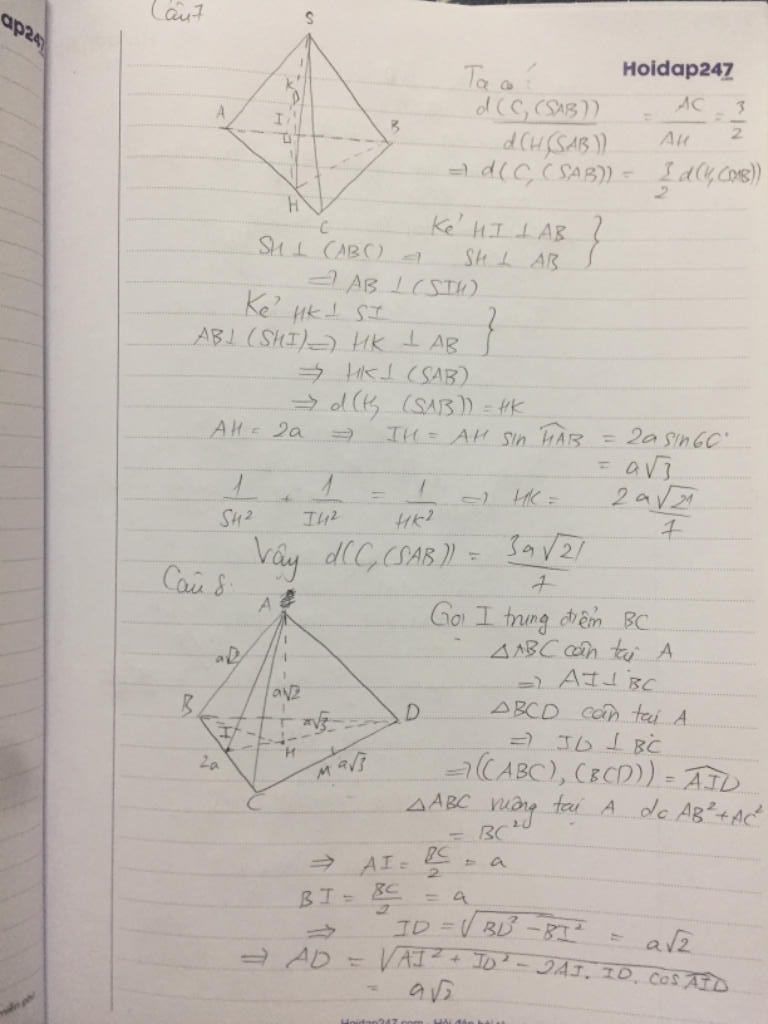 ap247
Câu 7
Hoidap247
S
K
A
I
B
H
C
Ta có:
d(C,(SAB)) / d(H,(SAB)) = AC / AH = 3/2
⇒ d(C,(SAB)) = 3/2 d(H,(SAB))
Kẻ HI ⊥ AB }
SH ⊥ (ABC) ⇒ SH ⊥ AB
⇒ AB ⊥ (SIH)
Kẻ HK ⊥ SI }
AB ⊥ (SHI) ⇒ HK ⊥ AB
⇒ HK ⊥ (SAB)
⇒ d(H, (SAB)) = HK
AH = 2a ⇒ IH = AH sin HAB = 2a sin 60°
= a√3
1/SH² + 1/IH² = 1/HK² ⇒ HK = 2a√21/7
Vậy d(C,(SAB)) = 3a√21/7
Câu 8.
A
a√2
a√2
B
a√3
D
I
H
2a
M
a√3
C
Gọi I trung điểm BC
△ABC cân tại A
⇒ AI ⊥ BC
△BCD cân tại A
⇒ ID ⊥ BC
⇒ ((ABC), (BCD)) = AID
△ABC vuông tại A do AB² + AC²
= BC²
⇒ AI = BC/2 = a
BI = BC/2 = a
⇒ ID = √(BD² − BI²) = a√2
⇒ AD = √(AI² + ID² − 2AI. ID. cos AID)
= a√2